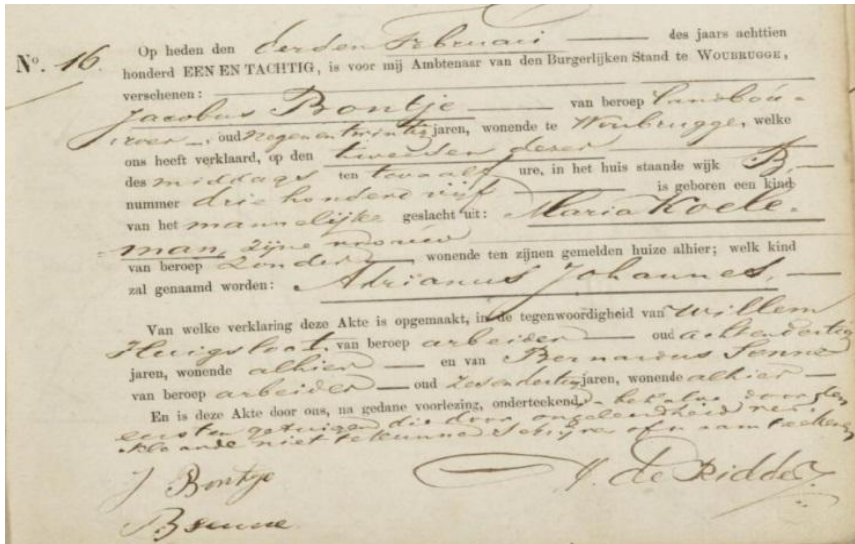 Nº. 16. Op heden den derden Februari des jaars achttien
honderd EEN EN TACHTIG, is voor mij Ambtenaar van den Burgerlijken Stand te WOUBRUGGE,
verschenen:
Jacobus Bontje van beroep landbou-
wer, oud negenentwintig jaren, wonende te Woubrugge, welke
ons heeft verklaard, op den tweeden dezer
des middags ten twaalf ure, in het huis staande wijk B,
nummer driehonderd vijf is geboren een kind
van het mannelijke geslacht uit: Maria Koele-
man, zijne vrouw
van beroep zonder, wonende ten zijnen gemelden huize alhier; welk kind
zal genaamd worden: Adrianus Johannes,
Van welke verklaring deze Akte is opgemaakt, in de tegenwoordigheid van Willem
Huigsloot, van beroep arbeider oud achtendertig
jaren, wonende alhier en van Bernardus Senne
van beroep arbeider oud zesendertig jaren, wonende alhier
En is deze Akte door ons, na gedane voorlezing, onderteekend, behalve door den
eersten getuigen die door ongeleerdheid ver-
klaarde niet te kunnen schrijven of naamteekenen
J Bontje
H. de Ridder
B Senne